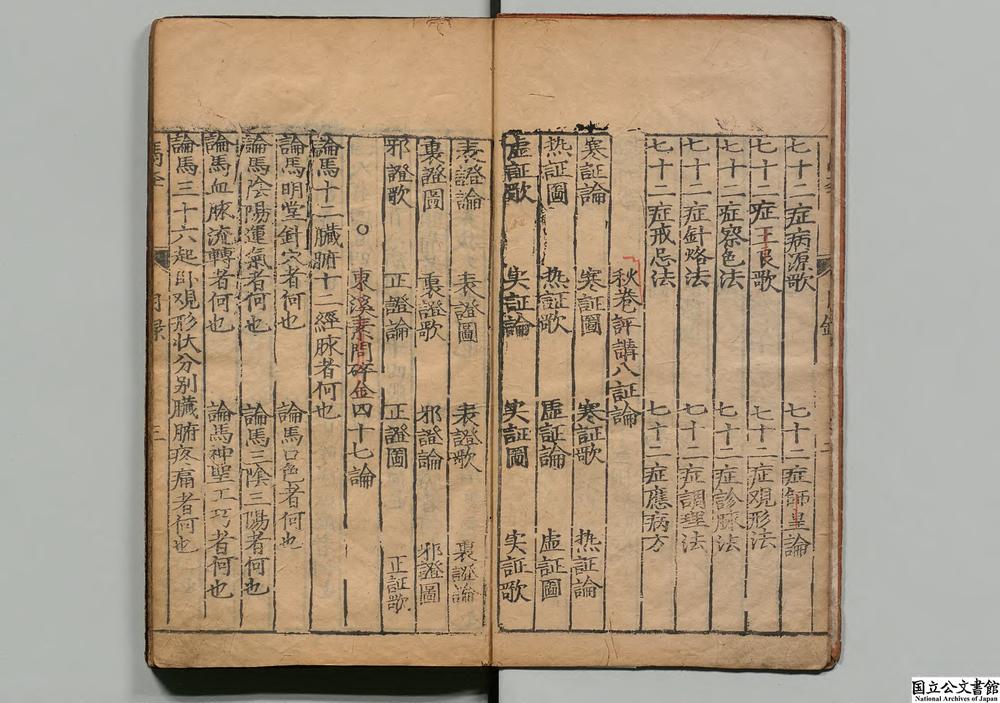 七十二症病源歌 七十二症師皇論
七十二症王良歌 七十二症观形法
七十二症察色法 七十二症診脉法
七十二症針烙法 七十二症調理法
七十二症戒忌法 七十二症應病方
秋巷評講八証論
寒証論 寒証圖 寒証歌 热証論
热証圖 热証歌 虛証論 虛証圖
虛証歌 实証論 实証圖 实証歌
表證論 表證圖 表證歌 裏證論
裏證圖 裏證歌 邪證論 邪證圖
邪證歌 正證論 正證圖 正証歌
○東溪素問碎金四十七論
論馬十二臟腑十二經脉者何也
論馬明堂針穴者何也 論馬口色者何也
論馬陰陽運氣者何也 論馬三陰三陽者何也
論馬血脉流轉者何也 論馬神聖工巧者何也
論馬三十六起卧观形状分别臟腑疾痛者何也
目录 三
国立公文書館
National Archives of Japan